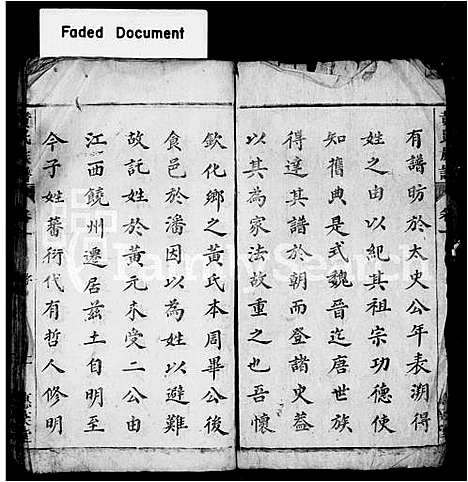 Faded Document
有譜昉於太史公年表溯得
姓之由以紀其祖宗功德使
知舊典是式魏晉迄唐世族
得達其譜於朝而登諸史葢
以其為家法故重之也吾懷
欽化鄉之黃氏本周畢公後
食邑於潘因以為姓以避難
故託姓於黃元末受二公由
江西饒州遷居茲土自明至
今子姓蕃衍代有哲人修明
FamilySearch